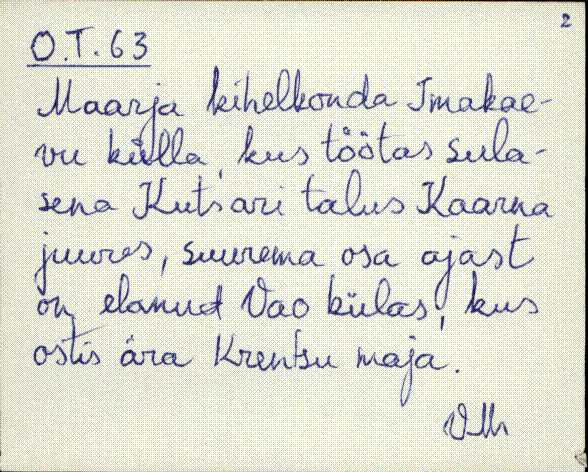 2
O.T. 63
Maarja kihelkonda Imakae-
vu külla, kus töötas sula-
sena Kutsari talus Kaarna
juures, suurema osa ajast
on elanud Vao külas, kus
ostis ära Krentsu maja.